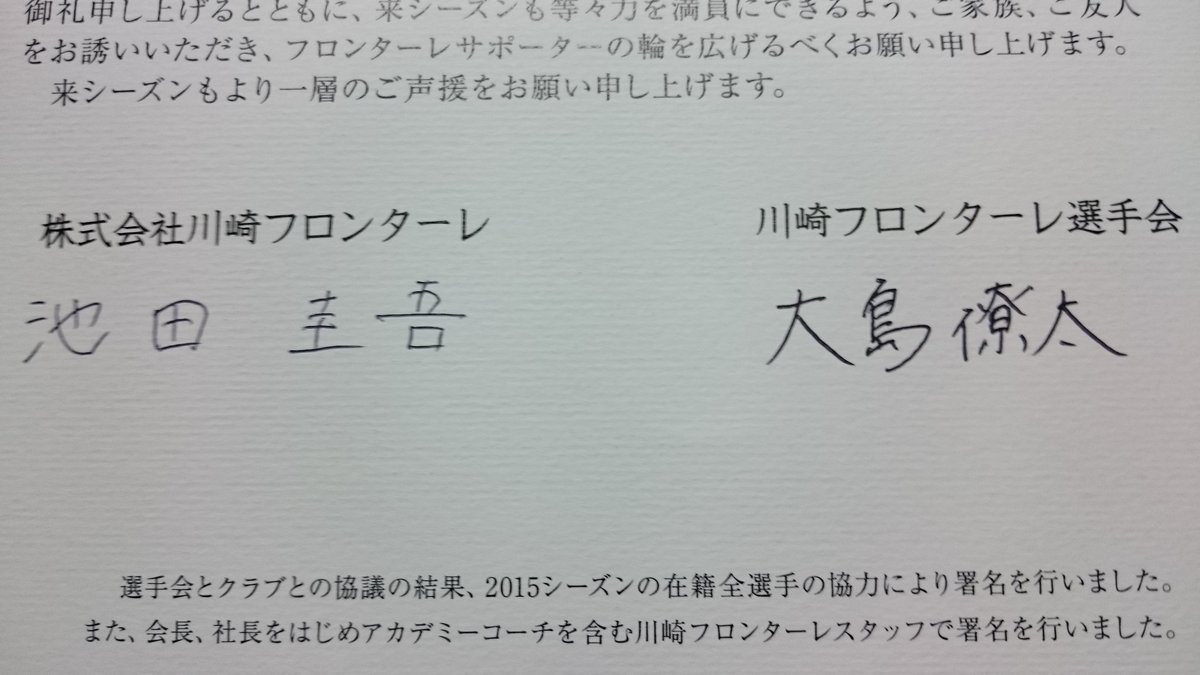 御礼申し上げるとともに、来シーズンも等々力を満員にできるよう、ご家族、ご友人
をお誘いいただき、フロンターレサポーターの輪を広げるべくお願い申し上げます。
来シーズンもより一層のご声援をお願い申し上げます。
株式会社川崎フロンターレ
川崎フロンターレ選手会
池田 圭吾
大島僚太
選手会とクラブとの協議の結果、2015シーズンの在籍全選手の協力により署名を行いました。
また、会長、社長をはじめアカデミーコーチを含む川崎フロンターレスタッフで署名を行いました。